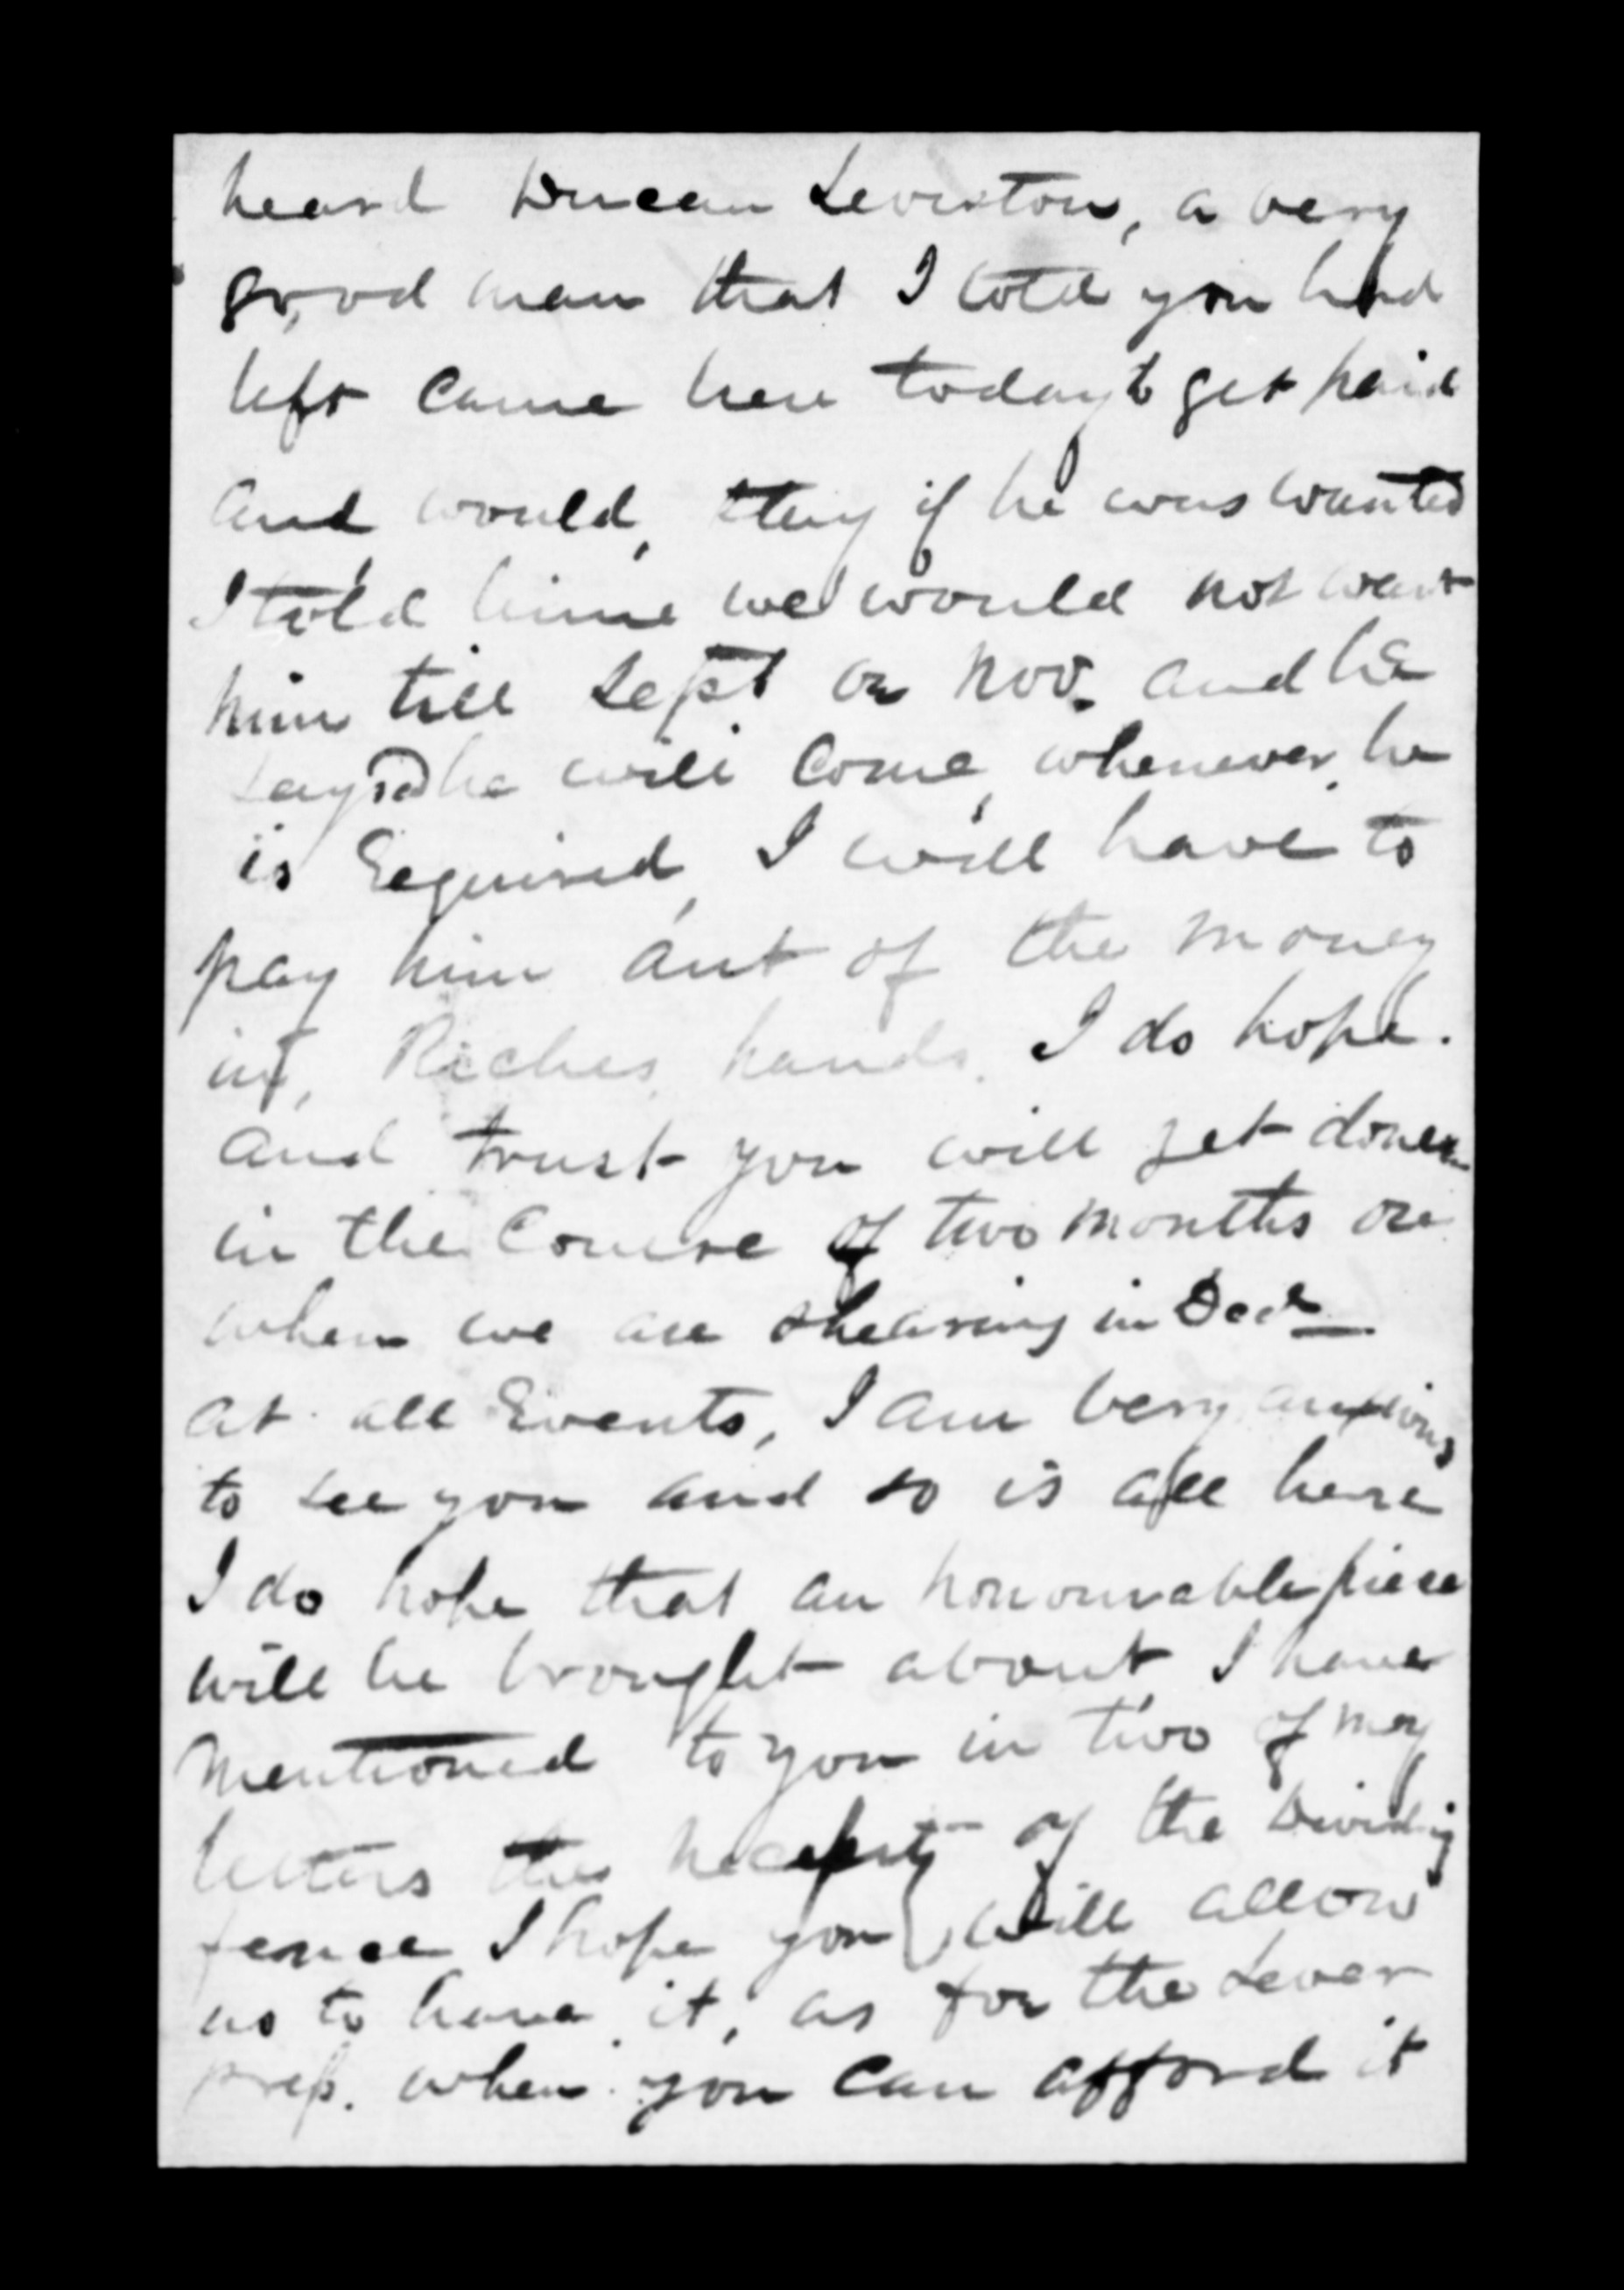 heard Duncan Leviston, a very
good man that I told you had
left Came here today to get paid
and would, stay if he was wanted
I told him we would not want
him till Sept or Nov. and he
says he will Come, whenever, he
is Required, I will have to
pay him out of the money
in, Riches hands. I do hope.
and trust you will get down
in the Course of two months or
when we are shearing in Decr
at all Events, I am very anxious
to see you and so is all here
I do hope that an honourable piece
will be brought about, I have
mentioned to you in two of my
letters the necessity of the Dividing
fence I hope you will allow
us to have it, as for the Lever
press. when you can afford it